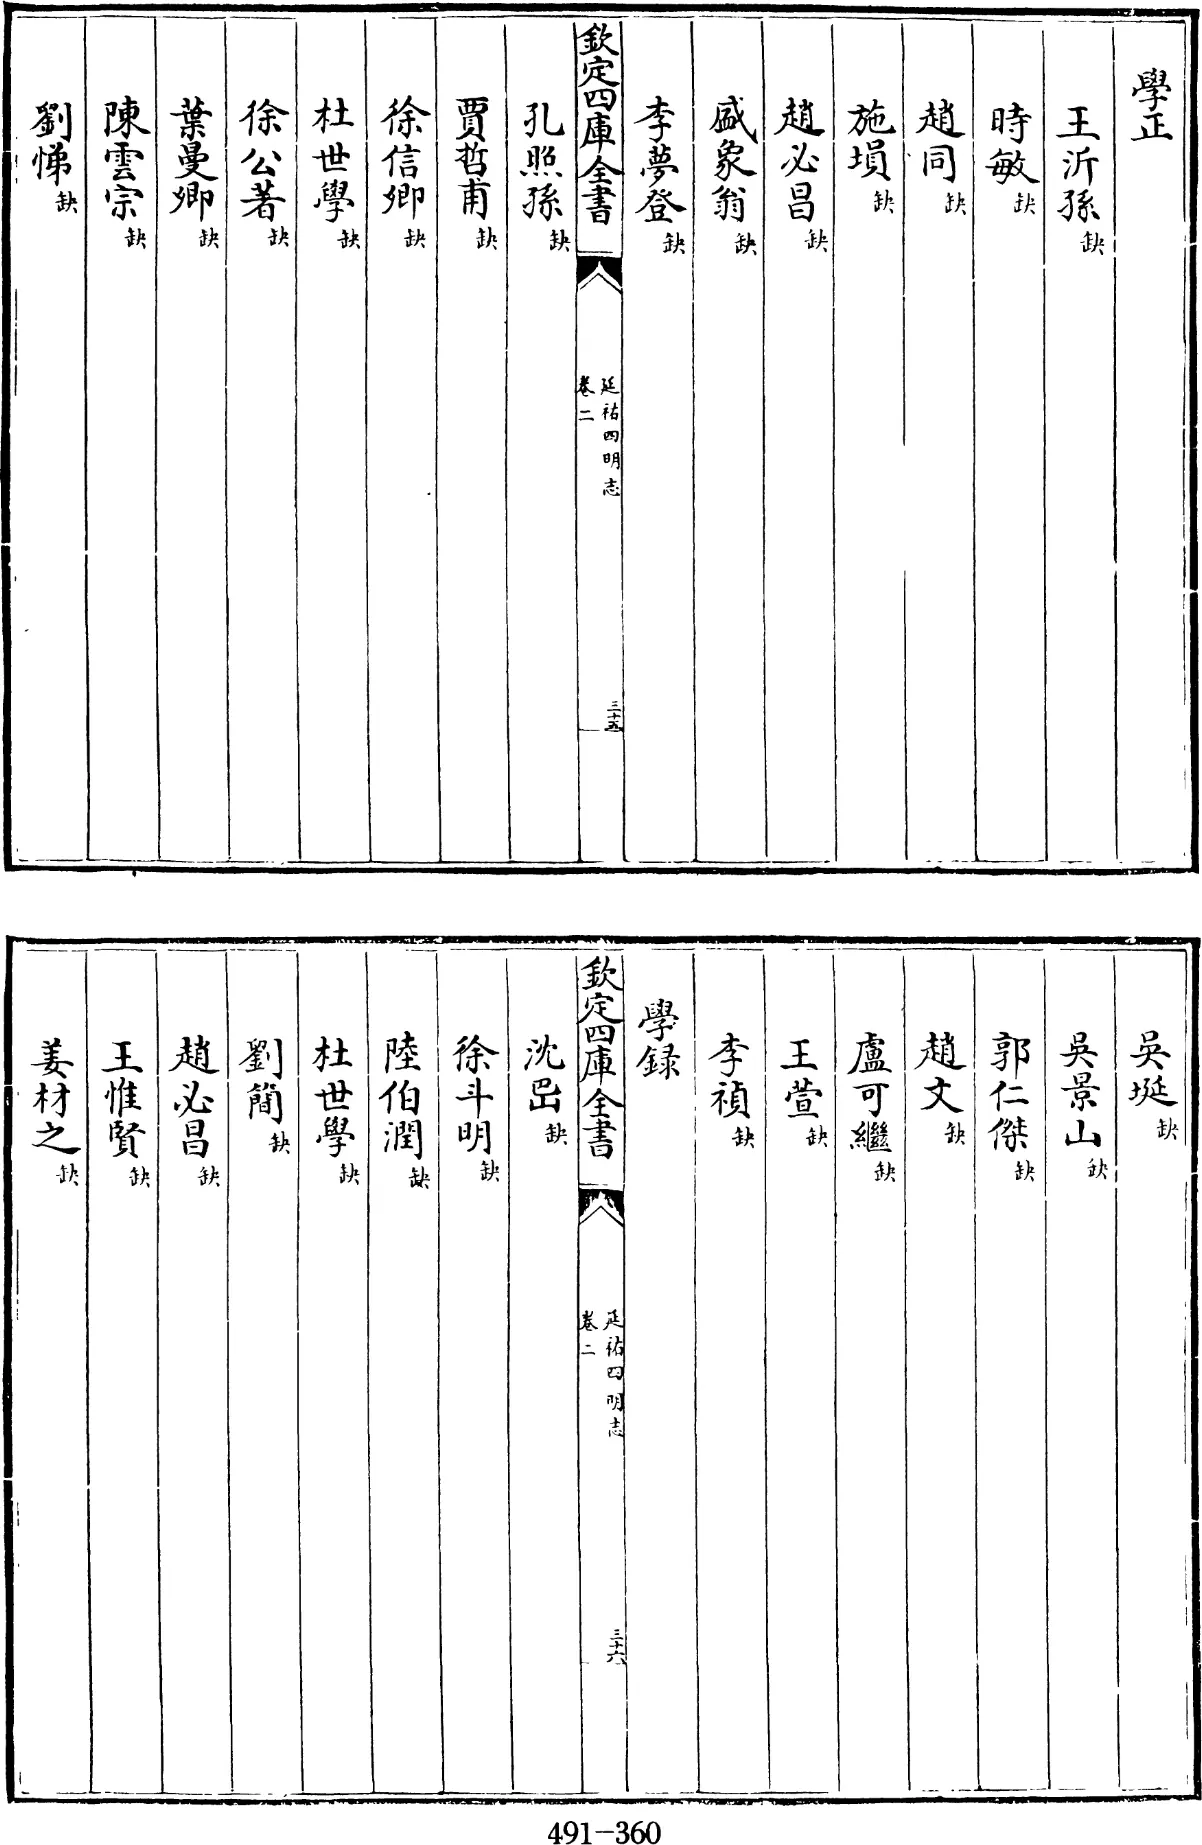 學正
王沂孫缺
時敏缺
趙同缺
施塤缺
趙必昌缺
盛象翁缺
李夢登缺
欽定四庫全書
延祐四明志
卷二
三十五
孔照孫缺
賈哲甫缺
徐信卿缺
杜世學缺
徐公著缺
葉曼卿缺
陳雲宗缺
劉悌缺
吳埏缺
吳景山缺
郭仁傑缺
趙文缺
盧可繼缺
王萱缺
李禎缺
學録
欽定四庫全書
延祐四明志
卷二
三十六
沈缺
徐斗明缺
陸伯潤缺
杜世學缺
劉簡缺
趙必昌缺
王惟賢缺
姜材之缺
491-360